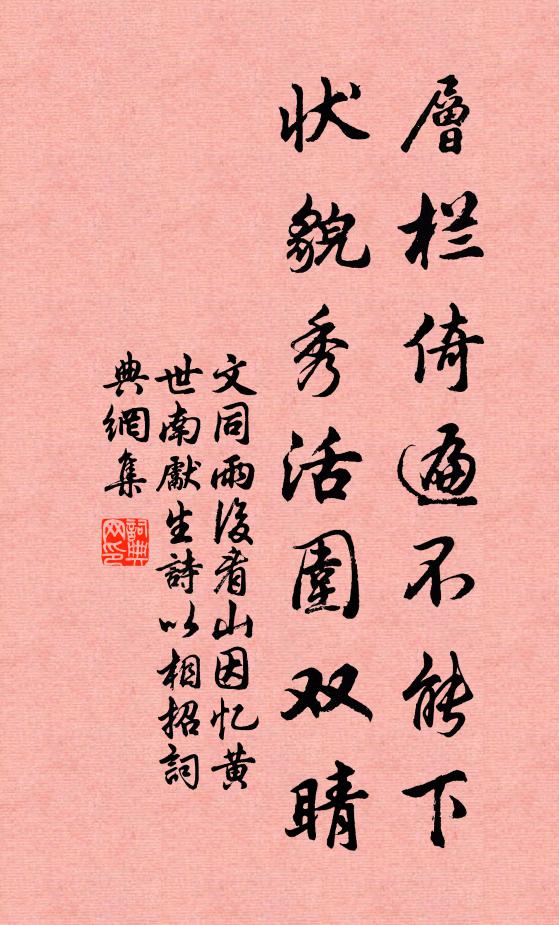 層栏倚遍不能下
状貌秀活圍双睛
文同雨後看山因忆黄
世南獻生詩以相招詞
典網集
詞典
网印